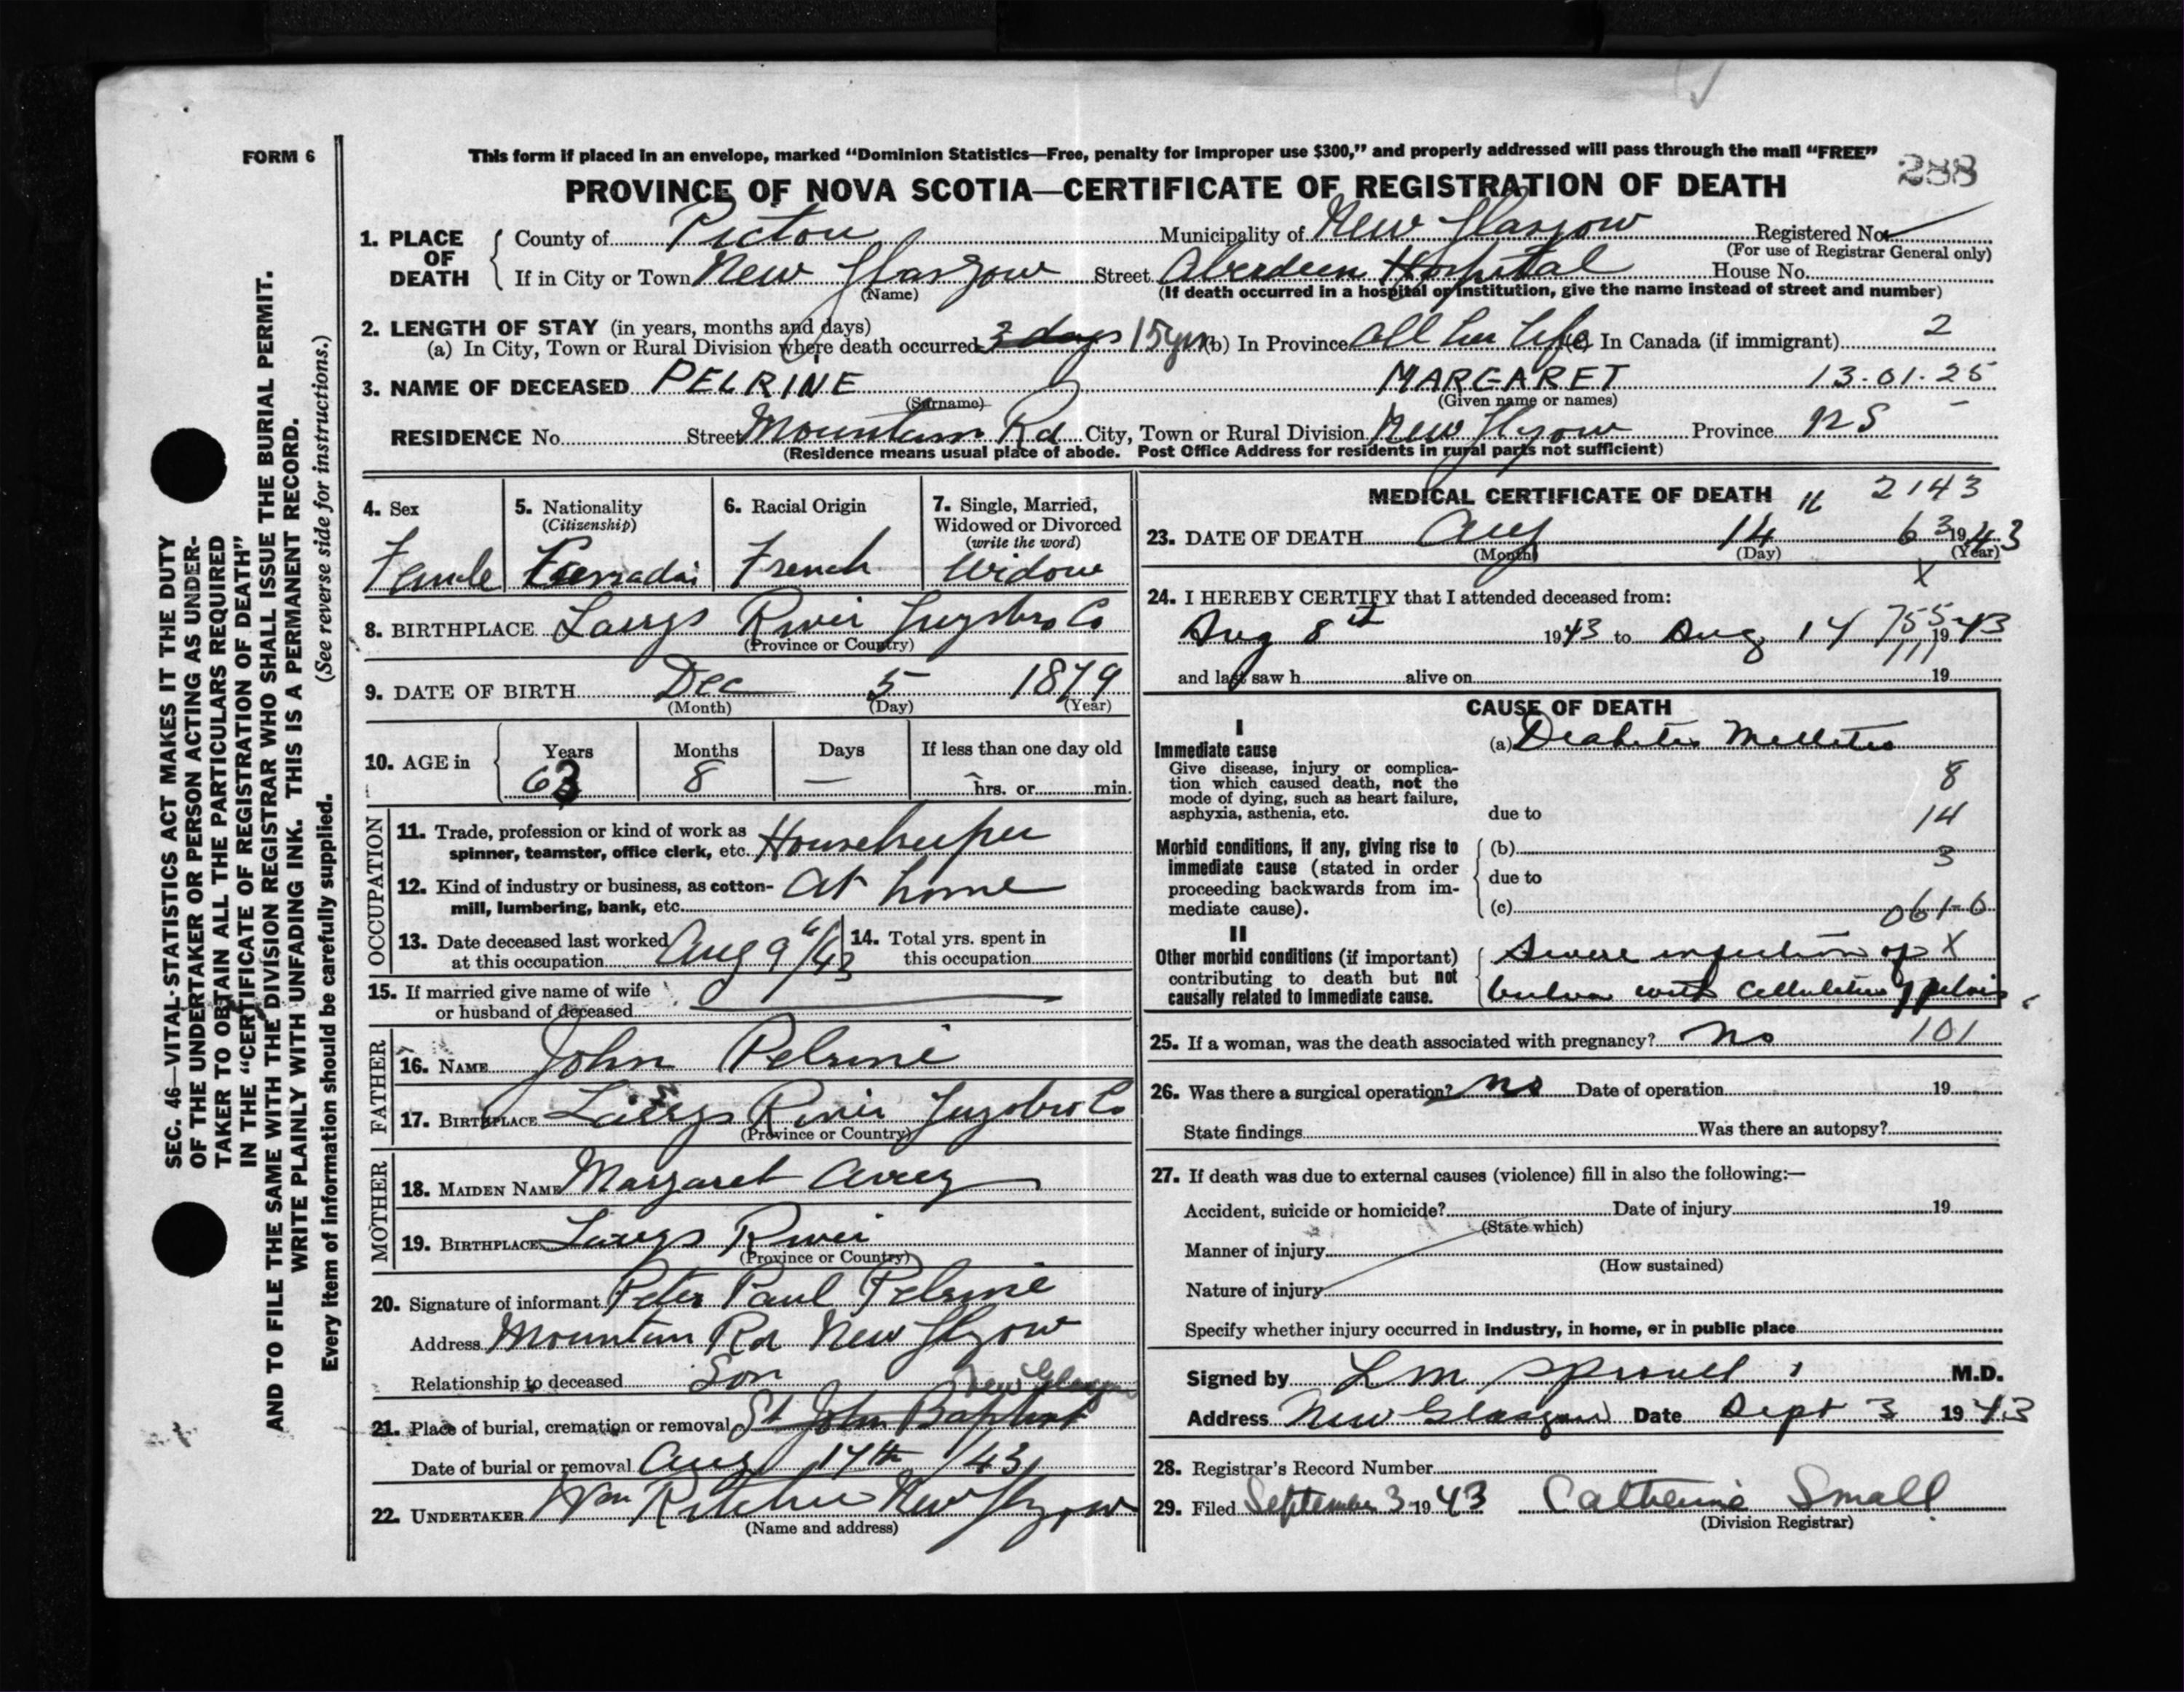 FORM 6
This form if placed in an envelope, marked "Dominion Statistics—Free, penalty for improper use $300," and properly addressed will pass through the mail "FREE"
288
PROVINCE OF NOVA SCOTIA—CERTIFICATE OF REGISTRATION OF DEATH
1. PLACE OF DEATH
County of Pictou Municipality of New Glasgow Registered No.
(For use of Registrar General only)
If in City or Town New Glasgow Street Aberdeen Hospital House No.
(Name) (If death occurred in a hospital or institution, give the name instead of street and number)
2. LENGTH OF STAY (in years, months and days)
(a) In City, Town or Rural Division where death occurred 3 days 15 yrs (b) In Province All her life (c) In Canada (if immigrant) 2
3. NAME OF DECEASED PELRINE MARGARET 13-01-25
(Surname) (Given name or names)
RESIDENCE No. Street Mountain Rd City, Town or Rural Division New Glasgow Province NS
(Residence means usual place of abode. Post Office Address for residents in rural parts not sufficient)
SEC. 46—VITAL-STATISTICS ACT MAKES IT THE DUTY
OF THE UNDERTAKER OR PERSON ACTING AS UNDER-
TAKER TO OBTAIN ALL THE PARTICULARS REQUIRED
IN THE "CERTIFICATE OF REGISTRATION OF DEATH"
AND TO FILE THE SAME WITH THE DIVISION REGISTRAR WHO SHALL ISSUE THE BURIAL PERMIT.
WRITE PLAINLY WITH UNFADING INK. THIS IS A PERMANENT RECORD.
Every item of information should be carefully supplied. (See reverse side for instructions.)
4. Sex 5. Nationality 6. Racial Origin 7. Single, Married,
(Citizenship) Widowed or Divorced
(write the word)
Female French Widow
8. BIRTHPLACE Larrys River Guysboro Co
(Province or Country)
9. DATE OF BIRTH Dec 5 1879
(Month) (Day) (Year)
10. AGE in Years Months Days If less than one day old
63 8 — hrs. or min.
OCCUPATION
11. Trade, profession or kind of work as
spinner, teamster, office clerk, etc. Housekeeper
12. Kind of industry or business, as cotton-
mill, lumbering, bank, etc. At home
13. Date deceased last worked
at this occupation Aug 9th/43
14. Total yrs. spent in
this occupation
15. If married give name of wife
or husband of deceased
FATHER
16. NAME John Pelrine
17. BIRTHPLACE Larrys River Guysboro Co
(Province or Country)
MOTHER
18. MAIDEN NAME Margaret Avery
19. BIRTHPLACE Larrys River
(Province or Country)
20. Signature of informant Peter Paul Pelrine
Address Mountain Rd New Glasgow
Relationship to deceased Son
New Glasgow
21. Place of burial, cremation or removal St John Baptist
Date of burial or removal Aug 17th/43
22. UNDERTAKER Wm Ritchie New Glasgow
(Name and address)
MEDICAL CERTIFICATE OF DEATH 2143
23. DATE OF DEATH Aug 14 63 1943
(Month) (Day) (Year)
X
24. I HEREBY CERTIFY that I attended deceased from:
Aug 8th 1943 to Aug 14 755 1943
111
and last saw h alive on 19
CAUSE OF DEATH
I
Immediate cause (a) Diabetes Mellitus
Give disease, injury or complica-
tion which caused death, not the
mode of dying, such as heart failure,
asphyxia, asthenia, etc.
8
due to 14
Morbid conditions, if any, giving rise to
immediate cause (stated in order
proceeding backwards from im-
mediate cause).
(b)
3
due to
(c) 061-0
II
Other morbid conditions (if important)
contributing to death but not
causally related to immediate cause.
Severe infection of X
with cellulitis of pelvis
25. If a woman, was the death associated with pregnancy? No 101
26. Was there a surgical operation? No Date of operation 19
State findings Was there an autopsy?
27. If death was due to external causes (violence) fill in also the following:—
Accident, suicide or homicide? Date of injury 19
(State which)
Manner of injury
(How sustained)
Nature of injury
Specify whether injury occurred in industry, in home, or in public place
Signed by L M Sproull M.D.
Address New Glasgow Date Sept 3 1943
28. Registrar's Record Number
29. Filed September 3 1943 Catherine Small
(Division Registrar)